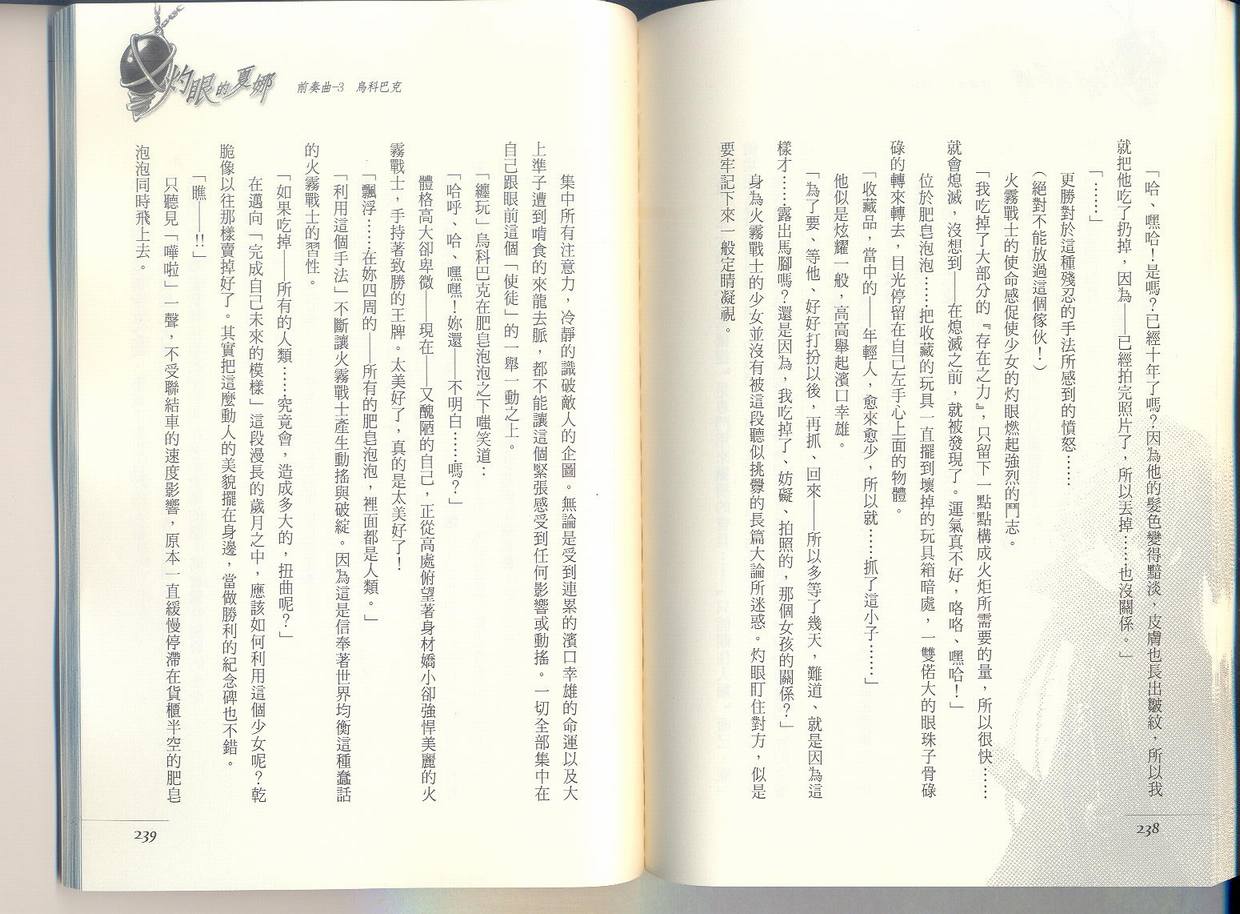 「哈、嘿哈！是嗎？已經十年了嗎？因為他的髮色變得黯淡，皮膚也長出皺紋，所以我
就把他吃了扔掉，因為——已經拍完照片了，所以去掉……也沒關係。」
「……」
更勝對於這種殘忍的手法所感到的憤怒……
（絕對不能放過這個傢伙！）
火霧戰士的使命感促使少女的灼眼燃起強烈的鬥志。
「我吃掉了大部分的『存在之力』，只留下一點點構成火炬所需要的量，所以很快……
就會熄滅，沒想到——在熄滅之前，就被發現了。運氣真不好，咯咯、嘿哈！」
位於肥皂泡泡……把收藏的玩具一直擺到壞掉的玩具箱暗處，一雙偌大的眼珠子骨碌
碌的轉來轉去，目光停留在自己左手心上面的物體。
「收藏品，當中的——年輕人，愈來愈少，所以就……抓了這小子……」
他似是炫耀一般，高高舉起濱口幸雄。
「為了要、等他、好好打扮以後，再抓、回來——所以多等了幾天，難道、就是因為這
樣才……露出馬腳嗎？還是因為，我吃掉了、妨礙、拍照的，那個女孩的關係？」
身為火霧戰士的少女並沒有被這段聽似挑釁的長篇大論所迷惑。灼眼盯住對方，似是
要牢記下來一般定睛凝視。
238
灼眼的夏娜
前奏曲-3 烏科巴克
集中所有注意力，冷靜的識破敵人的企圖。無論是受到連累的濱口幸雄的命運以及大
上準子遭到啃食的來龍去脈，都不能讓這個緊張感受到任何影響或動搖。一切全部集中在
自己跟眼前這個「使徒」的一舉一動之上。
「纏玩」烏科巴克在肥皂泡泡之下嗤笑道：
「哈呼、哈、嘿嘿！妳還——不明白……嗎？」
體格高大卻卑微——現在——又醜陋的自己，正從高處俯望著身材嬌小卻強悍美麗的火
霧戰士，手持著致勝的王牌。太美好了，真的是太美好了！
「飄浮……在妳四周的——所有的肥皂泡泡，裡面都是人類。」
「利用這個手法」不斷讓火霧戰士產生動搖與破綻。因為這是信奉著世界均衡這種蠢話
的火霧戰士的習性。
「如果吃掉——所有的人類……究竟會，造成多大的，扭曲呢？」
在邁向「完成自己未來的模樣」這段漫長的歲月之中，應該如何利用這個少女呢？乾
脆像以往那樣賣掉好了。其實把這麼動人的美貌擺在身邊，當做勝利的紀念碑也不錯。
「瞧——!!」
只聽見「嘩啦」一聲，不受聯結車的速度影響，原本一直緩慢停滯在貨櫃半空的肥皂
泡泡同時飛上去。
239